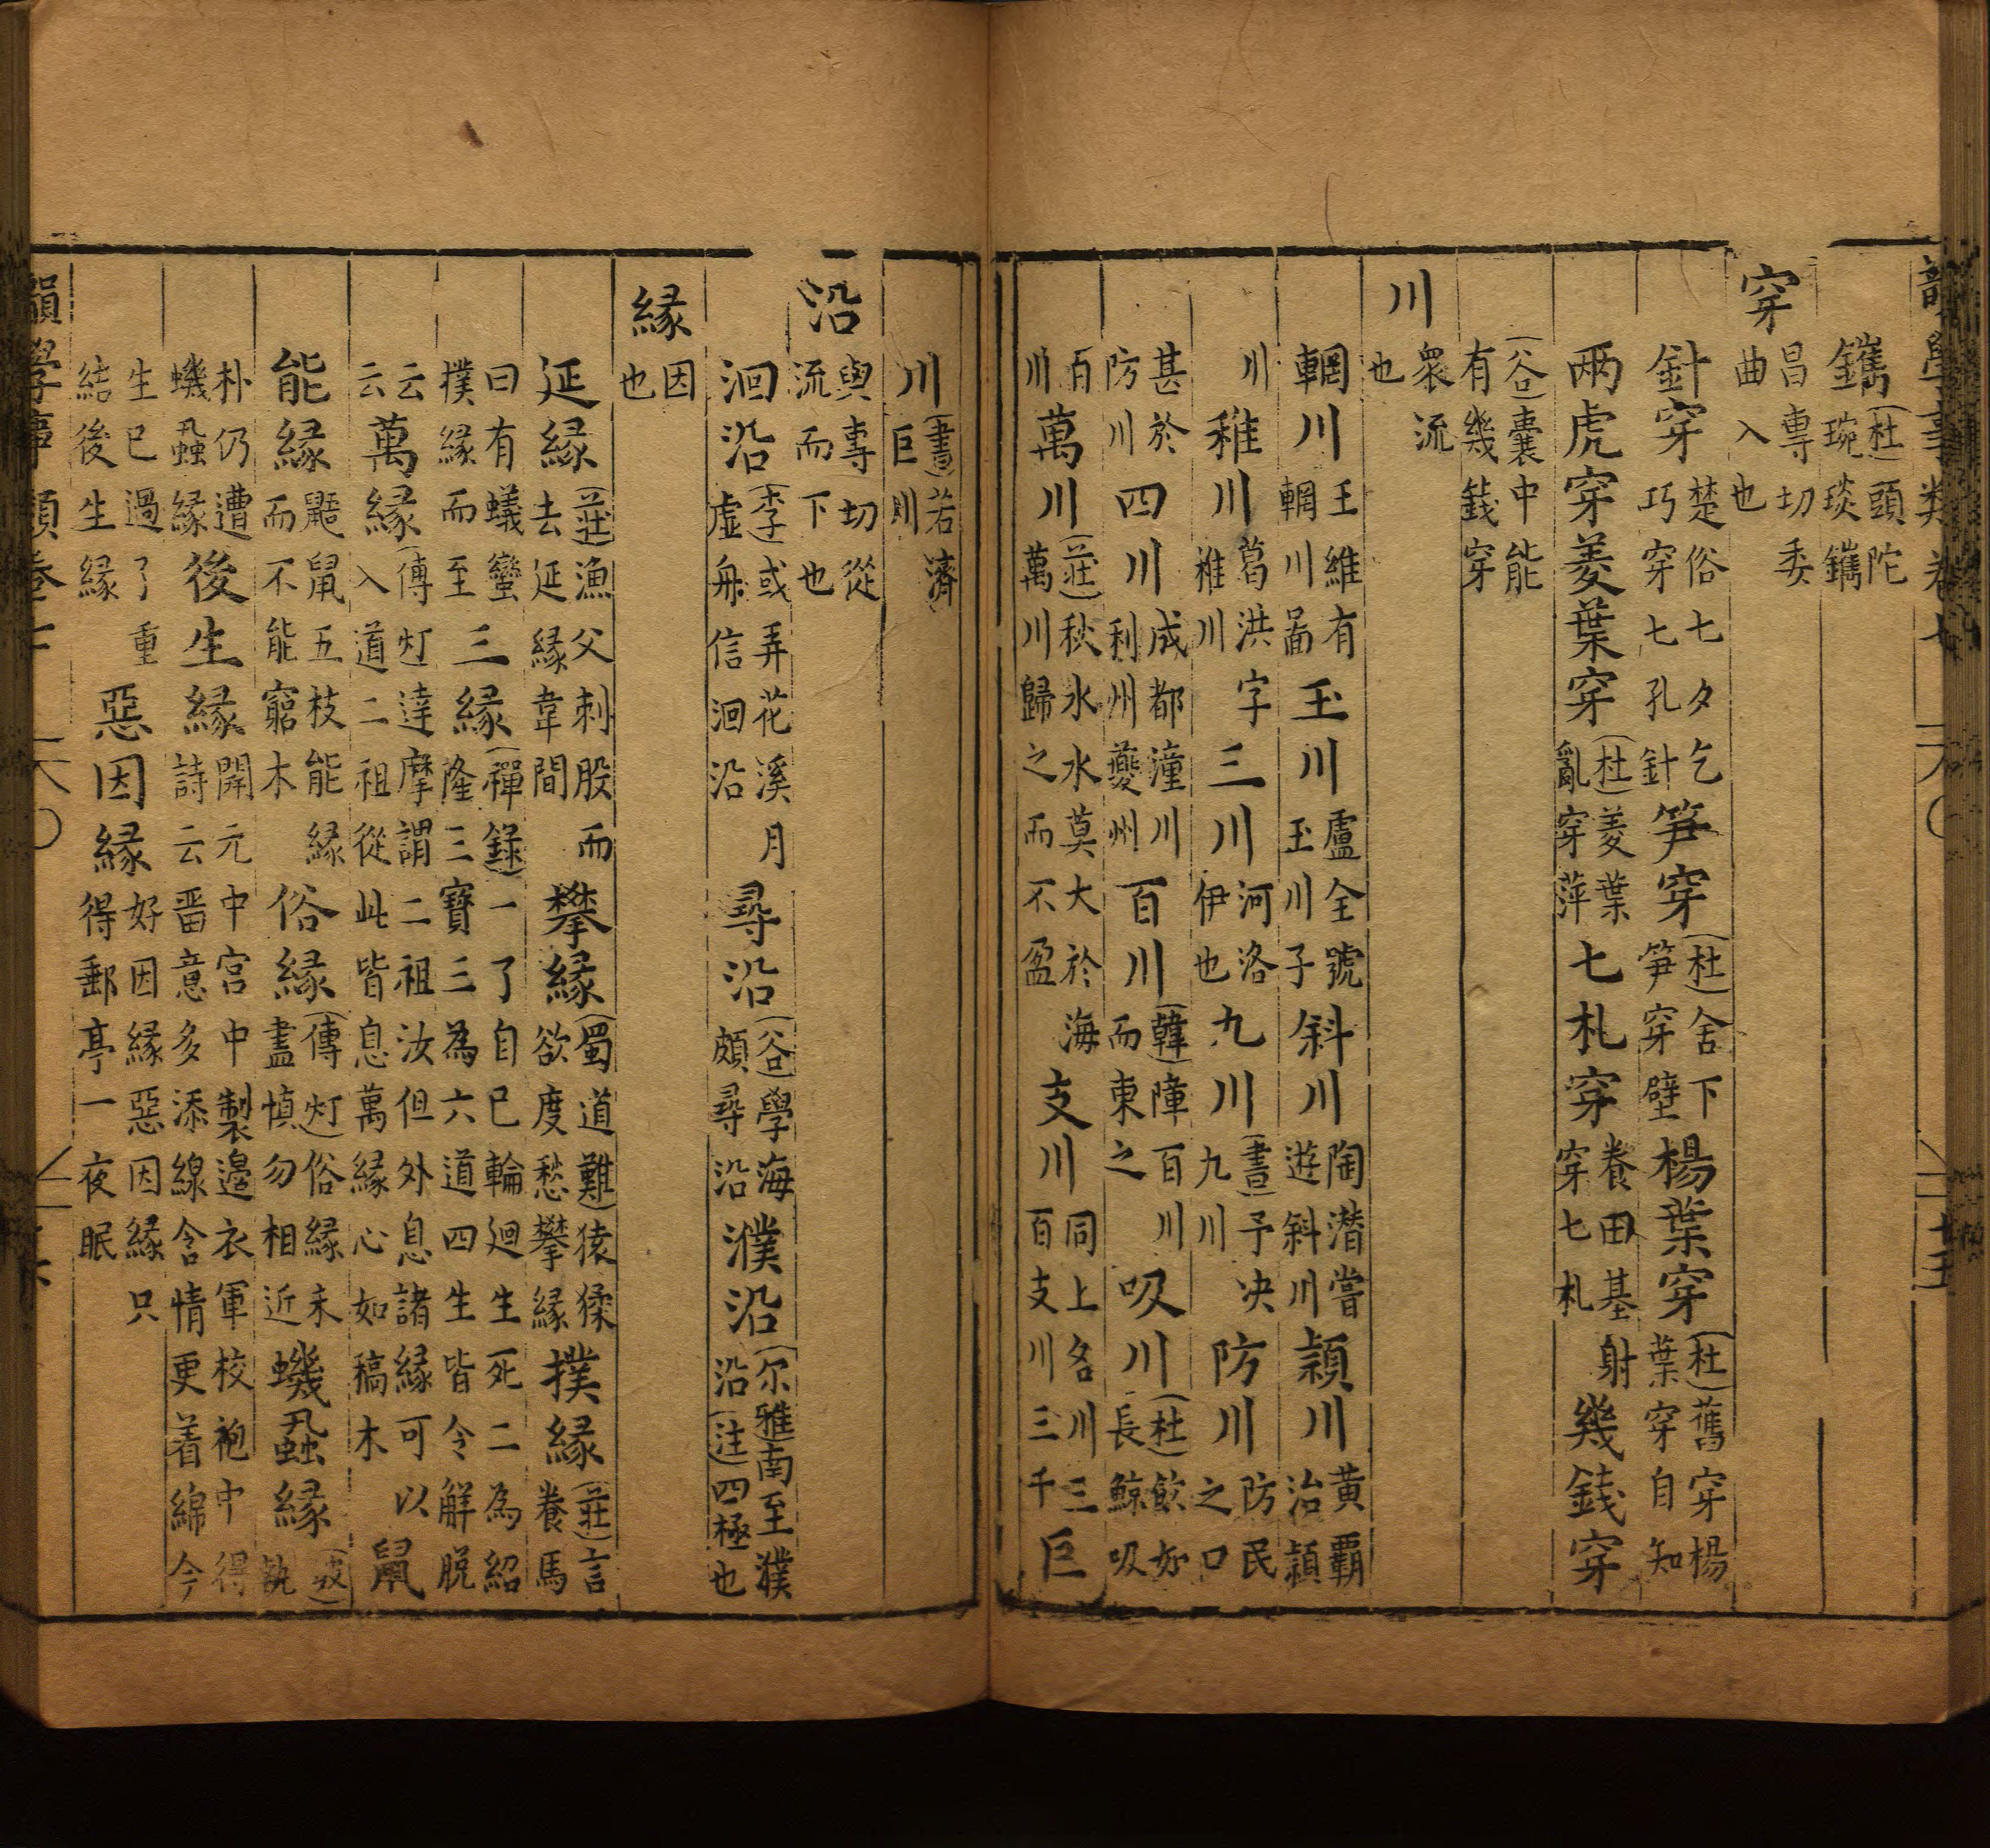 韻學事類卷七 十五
鐫(杜)頭陀琬琰鐫
穿昌専切委曲入也
針穿楚俗七夕乞巧穿七孔針笋穿(杜)舍下笋穿壁楊葉穿(杜)舊穿楊葉穿自知
兩虎穿菱葉穿(杜)菱葉亂穿萍七札穿養田基射穿七札幾錢穿
(谷)囊中能有幾錢穿
川衆流也
輞川王維有輞川啚玉川盧全號玉川子斜川陶潜嘗遊斜川潁川黄覇治潁
川稚川葛洪字稚川三川河洛伊也九川(書)予决九川防川防民之口
甚於防川四川成都潼川利州夔州百川(韓)障百川而東之吸川(杜)飲如長鯨吸
百川萬川(莊)秋水水莫大於海萬川歸之而不盈支川同上名川三百支川三千巨
川(書)若濟巨川
沿與專切從流而下也
洄沿(李)或弄花溪月虚舟信洄沿尋沿(谷)學海頗尋沿濮沿(尔雅)南至濮沿(注)四極也
縁因也
延縁(莊)漁父刺股而去延縁葦間攀縁(蜀道難)猿猱欲度愁攀縁撲縁(莊)言養馬
曰有蟻蝱撲縁而至三縁(禪錄)一了自已輪廻生死二為紹隆三寶三為六道四生皆令觧脱
云云萬縁(傳灯)達摩謂二祖汝但外息諸縁可以入道二祖從此皆息萬縁心如稿木鼠
能縁鼫鼠五枝能縁而不能窮木俗縁(傳灯)俗縁未盡慎勿相近蟣蝨縁(坡)執
朴仍遭蟣蝨縁後生縁開元中宫中製邉衣軍校袍中得詩云畨意多添線含情更着綿今
生已過了重結後生縁惡因縁好因縁惡因縁只得郵亭一夜眠
韻學事類卷七